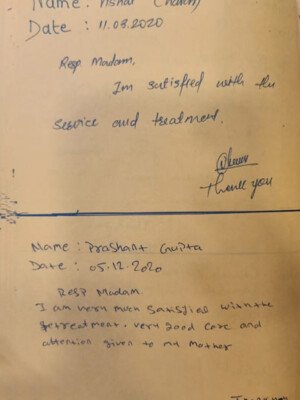 Name : Vishal
Date : 11.03.2020
Resp Madam,
Im satisfied with the
Service and treatment.
Thank you
Name : Prashant Gupta
Date : 05.12.2020
Resp Madam
I am very much Satisfied with the
treatment. very good care and
attention given to my Mother